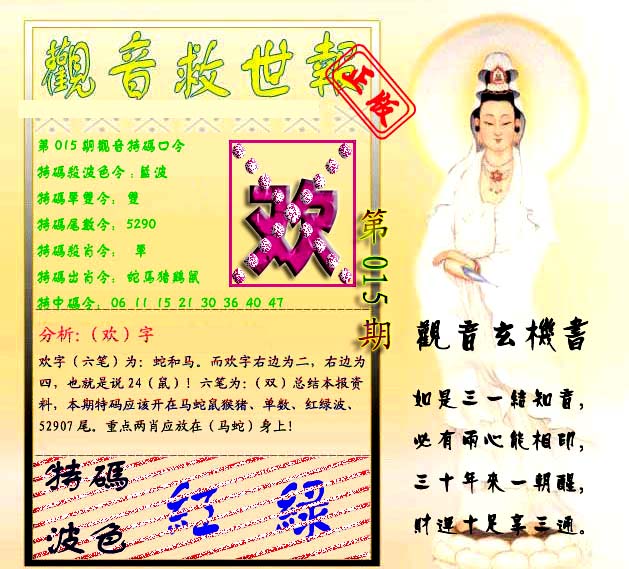 觀音救世報
正版
第015期觀音特碼口令
特碼殺波色令：藍波
特碼單雙令： 雙
特碼尾數令： 5290
特碼殺肖令： 單
特碼出肖令： 蛇馬猪鷄鼠
特中碼令： 06 11 15 21 30 36 40 47
欢
第015期
分析:（欢）字
欢字（六笔）为：蛇和马。而欢字右边为二，右边为
四，也就是说24（鼠）！六笔为：（双）总结本报资
料，本期特码应该开在马蛇鼠猴猪、单数、红绿波、
52907尾。重点两肖应放在（马蛇）身上！
特碼
波色
紅 綠
觀音玄機書
如是三一結知音，
必有兩心能相印，
三十年來一朝醒，
財運十足享三通。